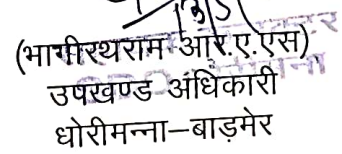 (भागीरथराम आर.ए.एस)
उपखण्ड अधिकारी
धोरीमन्ना–बाड़मेर